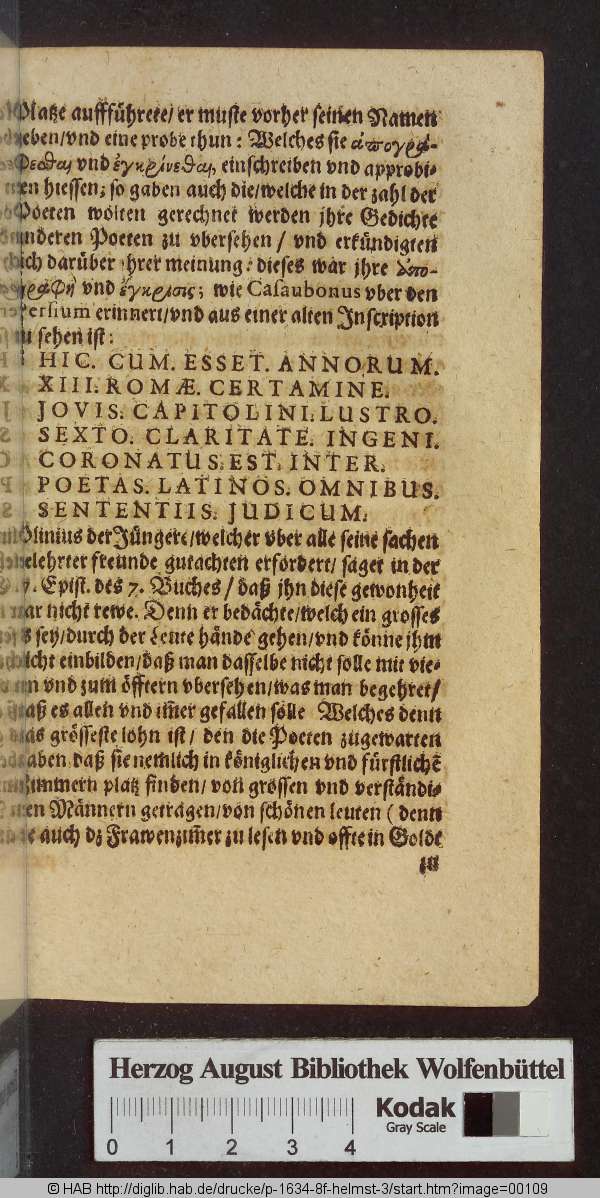 Platze auffführete/ er muste vorher seinen Namen
eben/vnd eine probe thun: Welches sie ἀπογρά-
φεσθαι vnd ἐγκρίνεσθαι, einschreiben vnd approbi-
en hiessen; so gaben auch die/welche in der zahl der
Poeten wolten gerechnet werden jhre Gedichte
anderen Poeten zu vbersehen / vnd erkündigten
ich darüber jhrer meinung: dieses war jhre ἀπο-
γραφὴ vnd ἔγκρισις; wie Casaubonus vber den
Persium erinnert/vnd aus einer alten Inscription
zu sehen ist:
HIC. CUM. ESSET. ANNORUM.
XIII. ROMÆ. CERTAMINE.
JOVIS. CAPITOLINI. LUSTRO.
SEXTO. CLARITATE. INGENI.
CORONATUS. EST. INTER.
POETAS. LATINOS. OMNIBUS.
SENTENTIIS. JUDICUM.
Plinius der Jüngere/welcher vber alle seine sachen
gelehrter freunde gutachten erfordert/ saget in der
7. Epist. des 7. Buches / daß jhn diese gewonheit
gar nicht rewe. Denn er bedächte/welch ein grosses
es sey/durch der Leute hände gehen/vnd könne jhm
nicht einbilden/daß man dasselbe nicht solle mit vie-
en vnd zum öfftern vbersehen/was man begehret/
daß es allen vnd im̃er gefallen solle Welches denn
das grösseste lohn ist/ den die Poeten zugewarten
haben, daß sie nemlich in königlichen vnd fürstlichẽ
Zimmern platz finden/ von grossen vnd verständi-
gen Männern getragen/von schönen leuten ( denn
sie auch dz Frawenzim̃er zu lesen vnd offte in Golde
zu
Herzog August Bibliothek Wolfenbüttel
Kodak
Gray Scale
0 1 2 3 4
© HAB http://diglib.hab.de/drucke/p-1634-8f-helmst-3/start.htm?image=00109